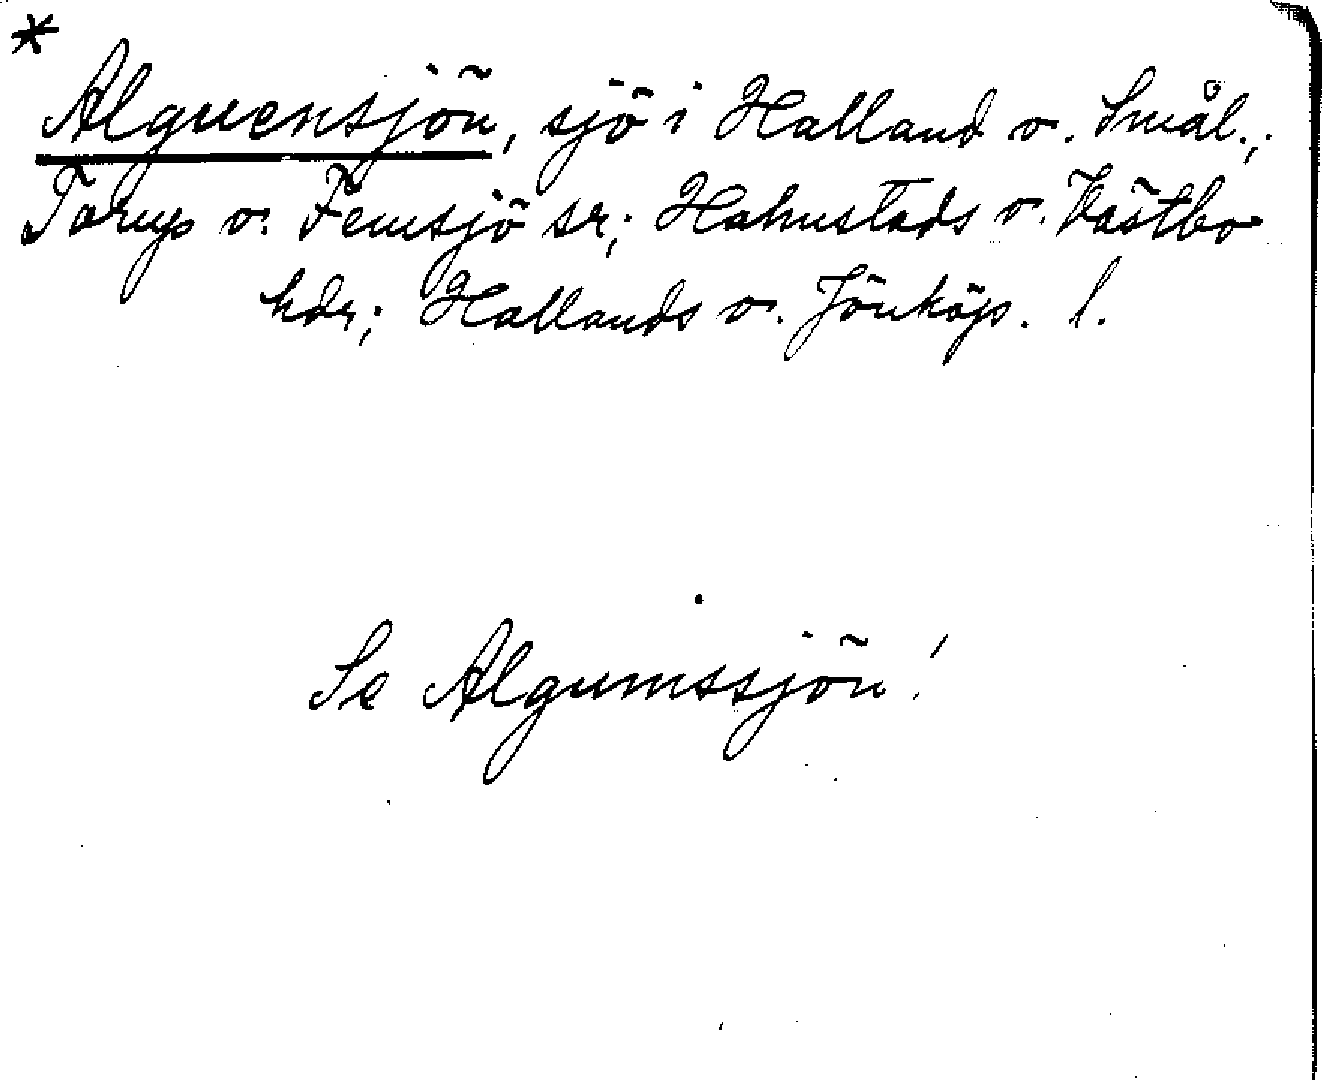 * Alguensjön, sjö i Halland o. Smål.,
Torup o. Femsjö sr; Halmstads o. Västbo
hdr; Hallands o. Jönköp. l.
Se Algumssjön!